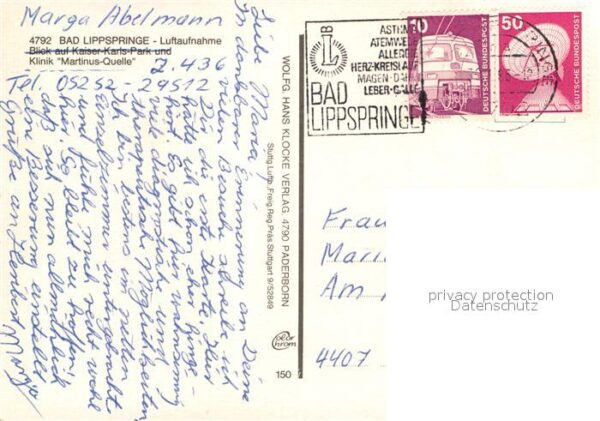 Marga Abelmann
4792 BAD LIPPSPRINGE - Luftaufnahme
Blick auf Kaiser-Karls-Park und
Klinik "Martinus-Quelle"
Z 436
Tel. 05252 29512
Liebe Maria!
In dankbarer Erinnerung an Deine
lieben Besuche schreibe ich
Dir die erste Karte. Hier
hätte ich schon eher hinge-
hört. Es gibt hier wahnsinnig
viele
therapeutische Möglichkeiten
Ich bin im dritten
Einzelzimmer untergebracht
und fühle mich recht wohl
hier. So bleibt zu hoffen,
daß sich nun allmählich
eine Besserung einstellt.
Grüße an Herbert Marga
WOLFG. HANS KLOCKE VERLAG, 4790 PADERBORN
Stuttg. Luftb., Freig. Reg. Präs. Stuttgart 9/52849
color chrom
150
LB
ASTHMA
ATEMWEGE
ALLERGIE
HERZ-KREISLAUF
MAGEN-DARM
LEBER-GALLE
BAD
LIPPSPRINGE
10
DEUTSCHE BUNDESPOST
50
DEUTSCHE BUNDESPOST
Frau
Maria
Am
4407
privacy protection
Datenschutz